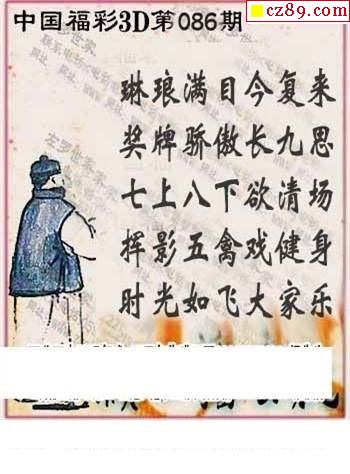 cz89.com
中国福彩3D第086期
琳琅满目今复来
奖牌骄傲长九思
七上八下欲清场
挥影五禽戏健身
时光如飞大家乐